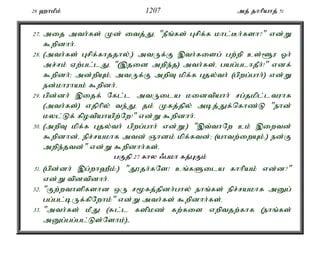 26 ஹாமீம் 1207 அத் தாரியாத் 51
27. அதை அவர்கள் முன் வைத்து, "நீங்கள் புசிக்க மாட்டீர்களா?" என்று
கூறினார்.
28. (அவர்கள் புசிக்காததால்,) அவருக்கு இவர்களைப் பற்றி உள்ளூர ஓர்
அச்சம் ஏற்பட்டது. "(இதனை அறிந்த) அவர்கள், பயப்படாதீர்!" எனக்
கூறினர்; அன்றியும், அவருக்கு அறிவு மிக்க புதல்வர் (பிறப்பார்) என்று
நன்மாராயம் கூறினர்.
29. பின்னர் இதைக் கேட்ட அவருடைய மனைவியார் சப்தமிட்டவராக
(அவர்கள்) எதிரில் வந்து, தம் முகத்தில் அடித்துக்கொண்டு "நான்
மலட்டுக் கிழவியாயிற்றே!" என்று கூறினார்.
30. (அறிவு மிக்க புதல்வர் பிறப்பார் என்று) "இவ்வாறே உம் இறைவன்
கூறினான், நிச்சயமாக அவன் ஞானம் மிக்கவன்; (யாவற்றையும்) நன்கு
அறிந்தவன்" என்று கூறினார்கள்.
பகுதி 27 கால ஃபமா கத்புகும்
31. (பின்னர் இப்றாஹீம்:) "தூதர்களே! உங்களுடைய காரியம் என்ன?"
என்று வினவினார்.
32. "குற்றவாளிகளான ஒரு சமூகத்தினர்பால் நாங்கள் நிச்சயமாக அனுப்
பப்பட்டிருக்கிறோம்" என்று அவர்கள் கூறினார்கள்.
33. "அவர்கள் மீது (சுட்ட களிமண் கற்களை எறிவதற்காக (நாங்கள்
அனுப்பப்பட்டுள்ளோம்).